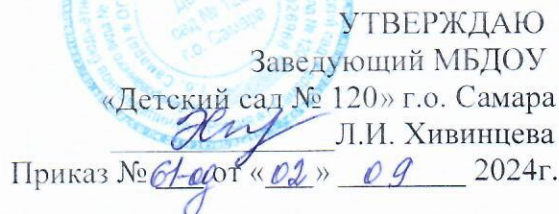 УТВЕРЖДАЮ
Заведующий МБДОУ
«Детский сад № 120» г.о. Самара
Л.И. Хивинцева
Приказ № 61-од от «02» 09 2024г.